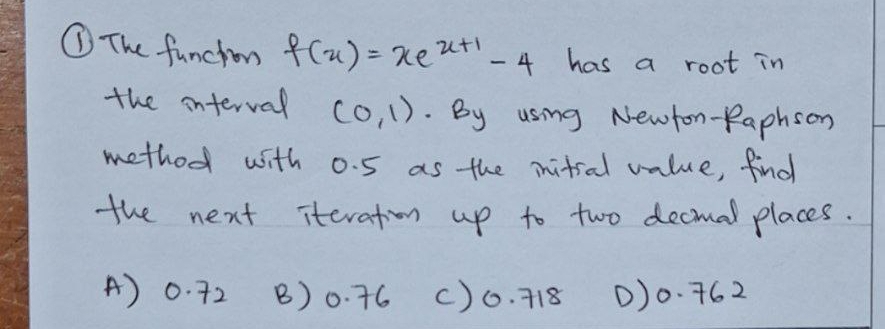 ① The function f(x) = xe^{x+1} - 4 has a root in
the interval (0,1). By using Newton-Raphson
method with 0.5 as the initial value, find
the next iteration up to two decimal places.
A) 0.72 B) 0.76 C) 0.718 D) 0.762